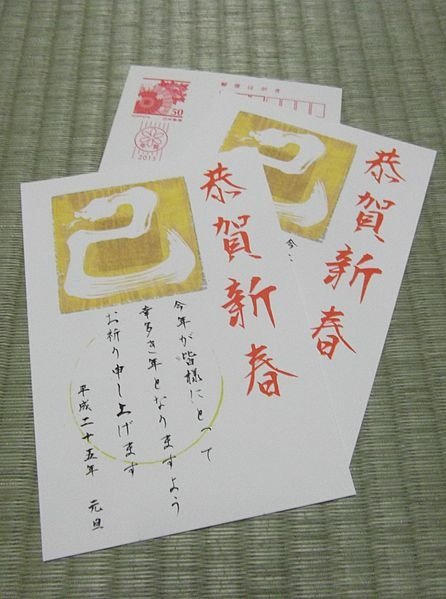 恭賀新春
巳
今年が皆様にとって
幸多き年となりますよう
お祈り申し上げます
平成二十五年 元旦
恭賀新春
巳
今
郵便はがき
50
2013